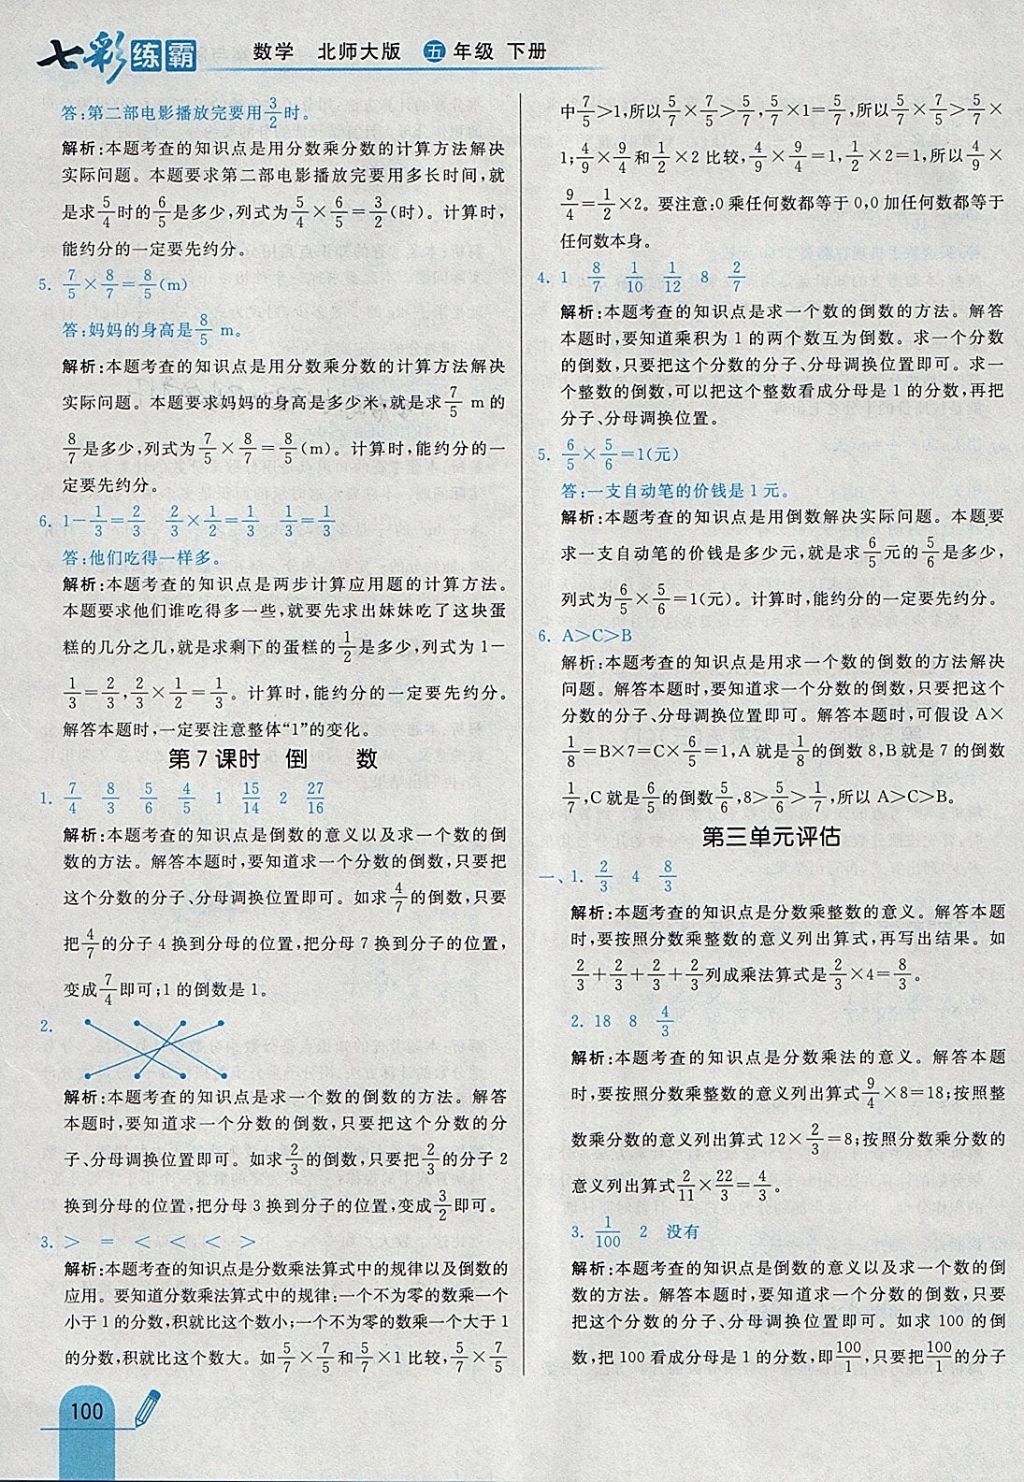 七彩练霸 数学 北师大版 五年级 下册
答:第二部电影播放完要用3/2时。
解析:本题考查的知识点是用分数乘分数的计算方法解决
实际问题。本题要求第二部电影播放完要用多长时间,就
是求5/4时的6/5是多少,列式为5/4×6/5=3/2(时)。计算时,
能约分的一定要先约分。
5. 7/5×8/7=8/5(m)
答:妈妈的身高是8/5 m。
解析:本题考查的知识点是用分数乘分数的计算方法解决
实际问题。本题要求妈妈的身高是多少米,就是求7/5 m的
8/7是多少,列式为7/5×8/7=8/5(m)。计算时,能约分的一
定要先约分。
6. 1-1/3=2/3 2/3×1/2=1/3 1/3=1/3
答:他们吃得一样多。
解析:本题考查的知识点是两步计算应用题的计算方法。
本题要求他们谁吃得多一些,就要先求出妹妹吃了这块蛋
糕的几分之几,就是求剩下的蛋糕的1/2是多少,列式为1-
1/3=2/3,2/3×1/2=1/3。计算时,能约分的一定要先约分。
解答本题时,一定要注意整体“1”的变化。
第7课时 倒 数
1. 7/4 8/3 5/6 4/5 1 15/14 2 27/16
解析:本题考查的知识点是倒数的意义以及求一个数的倒
数的方法。解答本题时,要知道求一个分数的倒数,只要把
这个分数的分子、分母调换位置即可。如求4/7的倒数,只要
把4/7的分子4换到分母的位置,把分母7换到分子的位置,
变成7/4即可;1的倒数是1。
2.
解析:本题考查的知识点是求一个数的倒数的方法。解答
本题时,要知道求一个分数的倒数,只要把这个分数的分
子、分母调换位置即可。如求2/3的倒数,只要把2/3的分子2
换到分母的位置,把分母3换到分子的位置,变成3/2即可。
3. > = < < < >
解析:本题考查的知识点是分数乘法算式中的规律以及倒数的
应用。要知道分数乘法算式中的规律:一个不为零的数乘一个
小于1的分数,积就比这个数小;一个不为零的数乘一个大于1
的分数,积就比这个数大。如5/7×7/5和5/7×1比较,5/7×7/5
中7/5>1,所以5/7×7/5>5/7,5/7×1=5/7,所以5/7×7/5>5/7×
1;4/9×9/4和1/2×2比较,4/9×9/4=1,1/2×2=1,所以4/9×
9/4=1/2×2。要注意:0乘任何数都等于0,0加任何数都等于
任何数本身。
4. 1 8/7 1/10 1/12 8 2/7
解析:本题考查的知识点是求一个数的倒数的方法。解答
本题时,要知道乘积为1的两个数互为倒数。求一个分数
的倒数,只要把这个数的分子、分母调换位置即可。求一
个整数的倒数,可以把这个整数看成分母是1的分数,再把
分子、分母调换位置。
5. 6/5×5/6=1(元)
答:一支自动笔的价钱是1元。
解析:本题考查的知识点是用倒数解决实际问题。本题要
求一支自动笔的价钱是多少元,就是求6/5元的5/6是多少,
列式为6/5×5/6=1(元)。计算时,能约分的一定要先约分。
6. A>C>B
解析:本题考查的知识点是用求一个数的倒数的方法解决
问题。解答本题时,要知道求一个分数的倒数,只要把这个
分数的分子、分母调换位置即可。解答本题时,可假设A×
1/8=B×7=C×6/5=1,A就是1/8的倒数8,B就是7的倒数
1/7,C就是6/5的倒数5/6,8>5/6>1/7,所以A>C>B。
第三单元评估
一、1. 2/3 4 8/3
解析:本题考查的知识点是分数乘整数的意义。解答本题
时,要按照分数乘整数的意义列出算式,再写出结果。如
2/3+2/3+2/3+2/3列成乘法算式是2/3×4=8/3。
2. 18 8 4/3
解析:本题考查的知识点是分数乘法的意义。解答本题
时,要按照分数乘整数的意义列出算式9/4×8=18;按照整
数乘分数的意义列出算式12×2/3=8;按照分数乘分数的
意义列出算式2/11×22/3=4/3。
3. 1/100 2 没有
解析:本题考查的知识点是倒数的意义以及求一个数的倒
数的方法。解答本题时,要知道求一个分数的倒数,只要把
这个分数的分子、分母调换位置即可。如求100的倒
数,把100看成分母是1的分数,即100/1,只要把100/1的分子
100